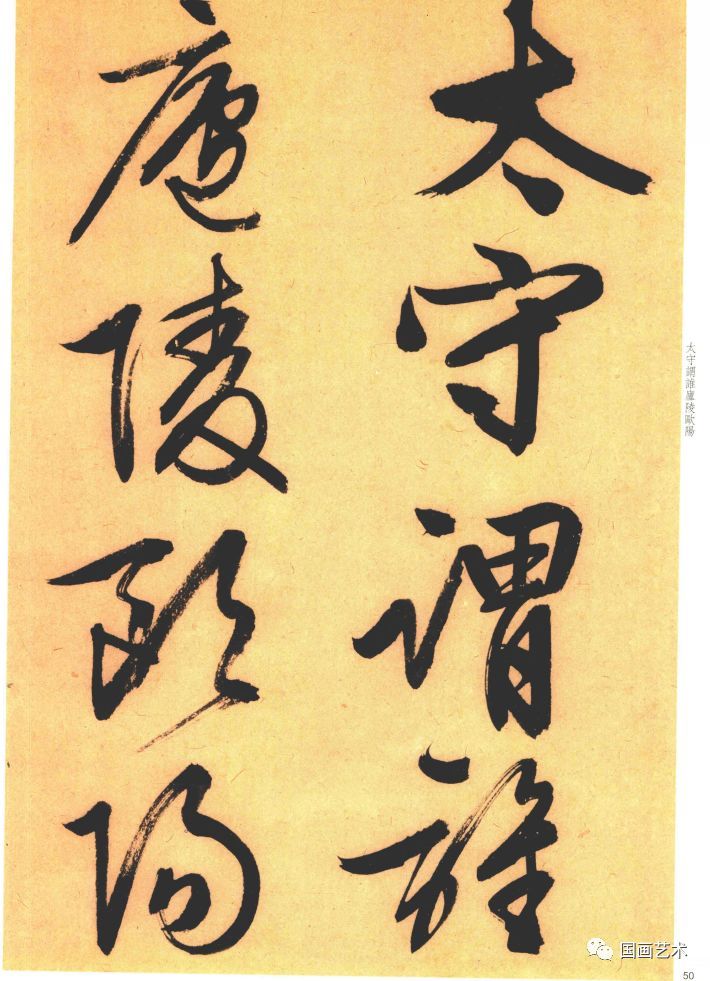 太守謂誰
廬陵歐陽
太守謂誰廬陵歐陽
国画艺术
50